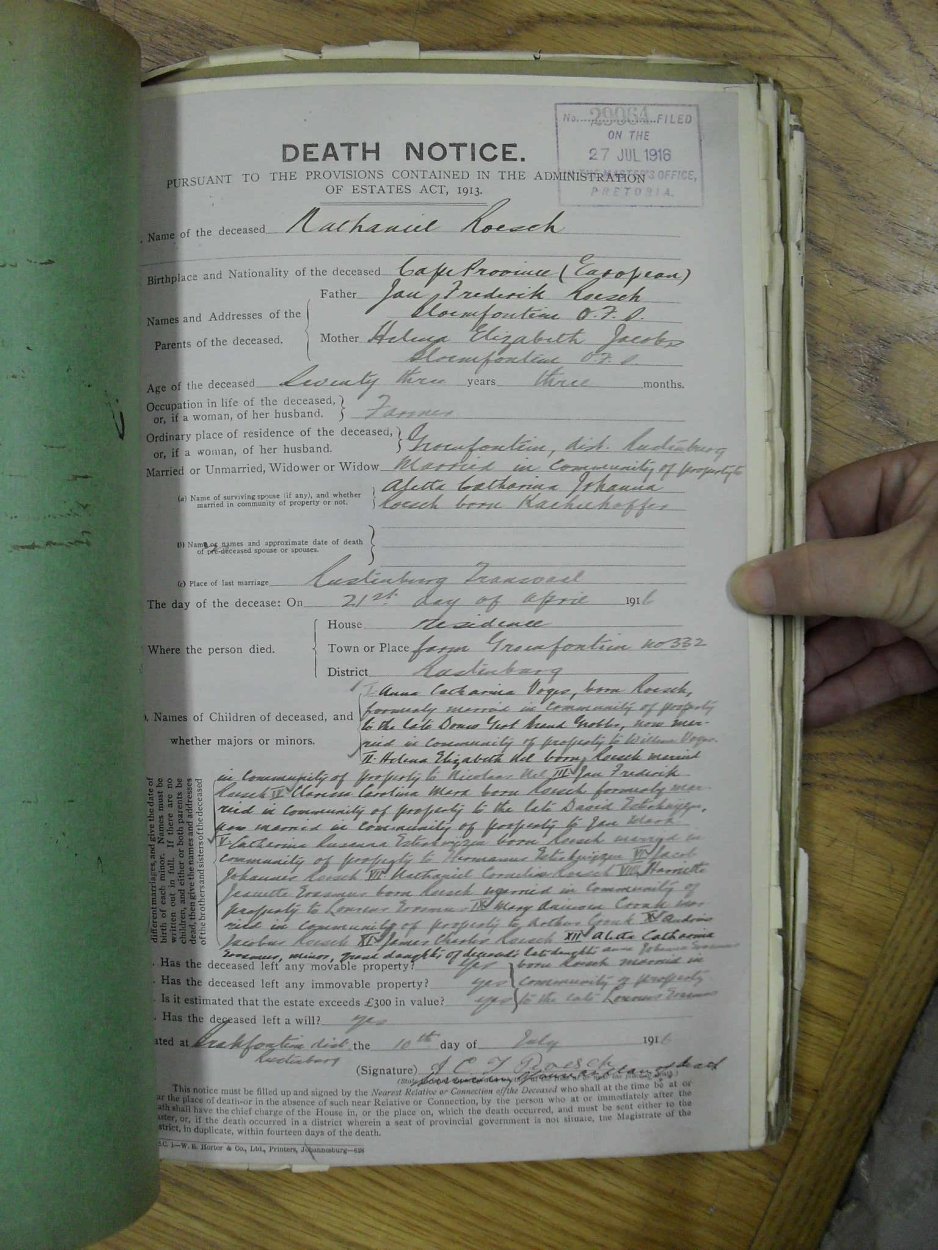 No. 29064 FILED
ON THE
27 JUL 1916
IN THE MASTER'S OFFICE,
PRETORIA.
DEATH NOTICE.
PURSUANT TO THE PROVISIONS CONTAINED IN THE ADMINISTRATION
OF ESTATES ACT, 1913.
. Name of the deceased Nathaniel Roesch
Birthplace and Nationality of the deceased Cape Province (European)
Father Jan Frederik Roesch
Bloemfontein O.F.S.
Names and Addresses of the
Parents of the deceased.
Mother Helena Elizabeth Jacobs
Bloemfontein O.F.S.
Age of the deceased Seventy three years three months.
Occupation in life of the deceased,
or, if a woman, of her husband. Farmer
Ordinary place of residence of the deceased,
or, if a woman, of her husband. Groenfontein, dist. Rustenburg
Married or Unmarried, Widower or Widow Married in community of property to
(a) Name of surviving spouse (if any), and whether
married in community of property or not.
Aletta Catharina Johanna
Roesch born
(b) Name or names and approximate date of death
of pre-deceased spouse or spouses.
(c) Place of last marriage Rustenburg Transvaal
The day of the decease: On 21st day of April 1916
House residence
Where the person died. Town or Place farm Groenfontein no 332
District Rustenburg
. Names of Children of deceased, and
whether majors or minors.
I. Anna Catharina Voges, born Roesch,
formerly married in community of property
to the late Grobbs, now mar-
ried in community of property to Willem Voges.
II. Helena Elizabeth Nel born Roesch married
in community of property to Nicolaas Nel III Jan Frederik
Roesch IV Clarissa Carolina Mara born Roesch formerly mar-
ried in community of property to the late David Esterhuyzen,
now married in community of property to Jan Mara
V Catharina Susanna Esterhuyzen born Roesch married in
community of property to Hermanus Esterhuyzen VI Jacob
Johannes Roesch VII Nathaniel Cornelius Roesch VIII Harriette
Jeanette Erasmus born Roesch married in community of
property to Lourens Erasmus IX Mary Cronk mar-
ried in community of property to Arthur Cronk X Andries
Jacobus Roesch XI James Charles Roesch XII Aletta Catharina
Erasmus, minor, grand daughter of deceased's late daughter Anna Johanna Erasmus
born Roesch married in
community of property
to the late Lourens Erasmus
different marriages, and give the date of
birth of each minor. Names must be
written out in full. If there are no
children, and either or both parents be
dead, then give the names and addresses
of the brothers and sisters of the deceased
. Has the deceased left any movable property? yes
. Has the deceased left any immovable property? yes
. Is it estimated that the estate exceeds £300 in value? yes
. Has the deceased left a will? yes
ated at Brakfontein dist. the 10th day of July 1916
Rustenburg
(Signature) A C J Roesch
This notice must be filled up and signed by the Nearest Relative or Connection of the Deceased who shall at the time be at or
ar the place of death—or in the absence of such near Relative or Connection, by the person who at or immediately after the
ath shall have the chief charge of the House in, or the place on, which the death occurred, and must be sent either to the
ster, or, if the death occurred in a district wherein a seat of provincial government is not situate, the Magistrate of the
strict, in duplicate, within fourteen days of the death.
W. E. Hortor & Co., Ltd., Printers, Johannesburg—